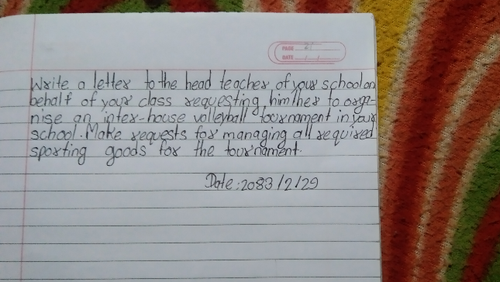 PAGE
DATE
Write a letter to the head teacher of your school on
behalf of your class requesting him/her to orga-
nise an inter-house volleyball tournament in your
school. Make requests for managing all required
sporting goods for the tournament.
Date: 2083/2/29